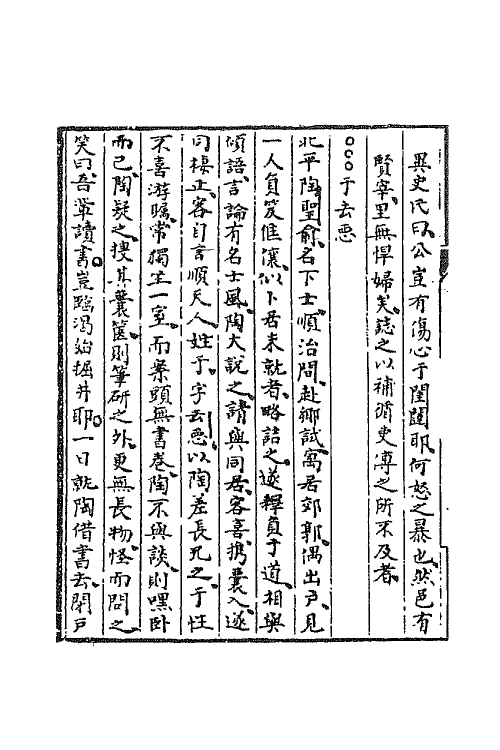 異史氏曰公豈有傷心于閨闥耶何怒之暴也然邑有
賢宰里無悍婦矣誌之以補循吏傳之所不及者
○○○于去惡
北平陶聖俞名下士順治間赴鄉試寓居郊郭偶出戶見
一人負笈偟儴似卜居未就者略詰之遂釋負于道相與
傾語言論有名士風陶大說之請與同居客喜攜囊入遂
同棲止客自言順天人姓于字去惡以陶差長兄之于性
不喜游矚常獨坐一室而案頭無書卷陶不與談則嘿臥
而已陶疑之搜其囊篋則筆研之外更無長物怪而問之
笑曰吾輩讀書豈臨渴始掘井耶一日就陶借書去閉戶